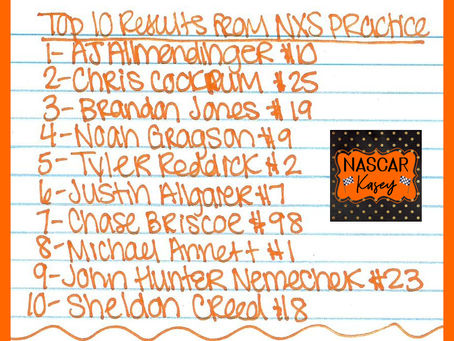 Top 10 Results from NXS Practice
1- AJ Allmendinger #10
2- Chris Cockrum #25
3- Brandon Jones #19
4- Noah Gragson #9
5- Tyler Reddick #2
6- Justin Allgaier #7
7- Chase Briscoe #98
8- Michael Annett #1
9- John Hunter Nemechek #23
10- Sheldon Creed #18
NASCAR
Kasey